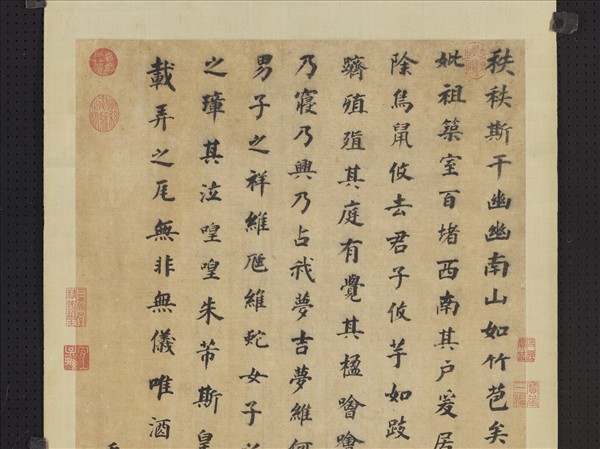 秩秩斯干幽幽南山如竹苞矣
妣祖築室百堵西南其戶爰居
除鳥鼠攸去君子攸芋如跂
躋殖殖其庭有覺其楹噲噲
乃寢乃興乃占我夢吉夢維何
男子之祥維虺維蛇女子
之璋其泣喤喤朱芾斯皇
載弄之瓦無非無儀唯酒